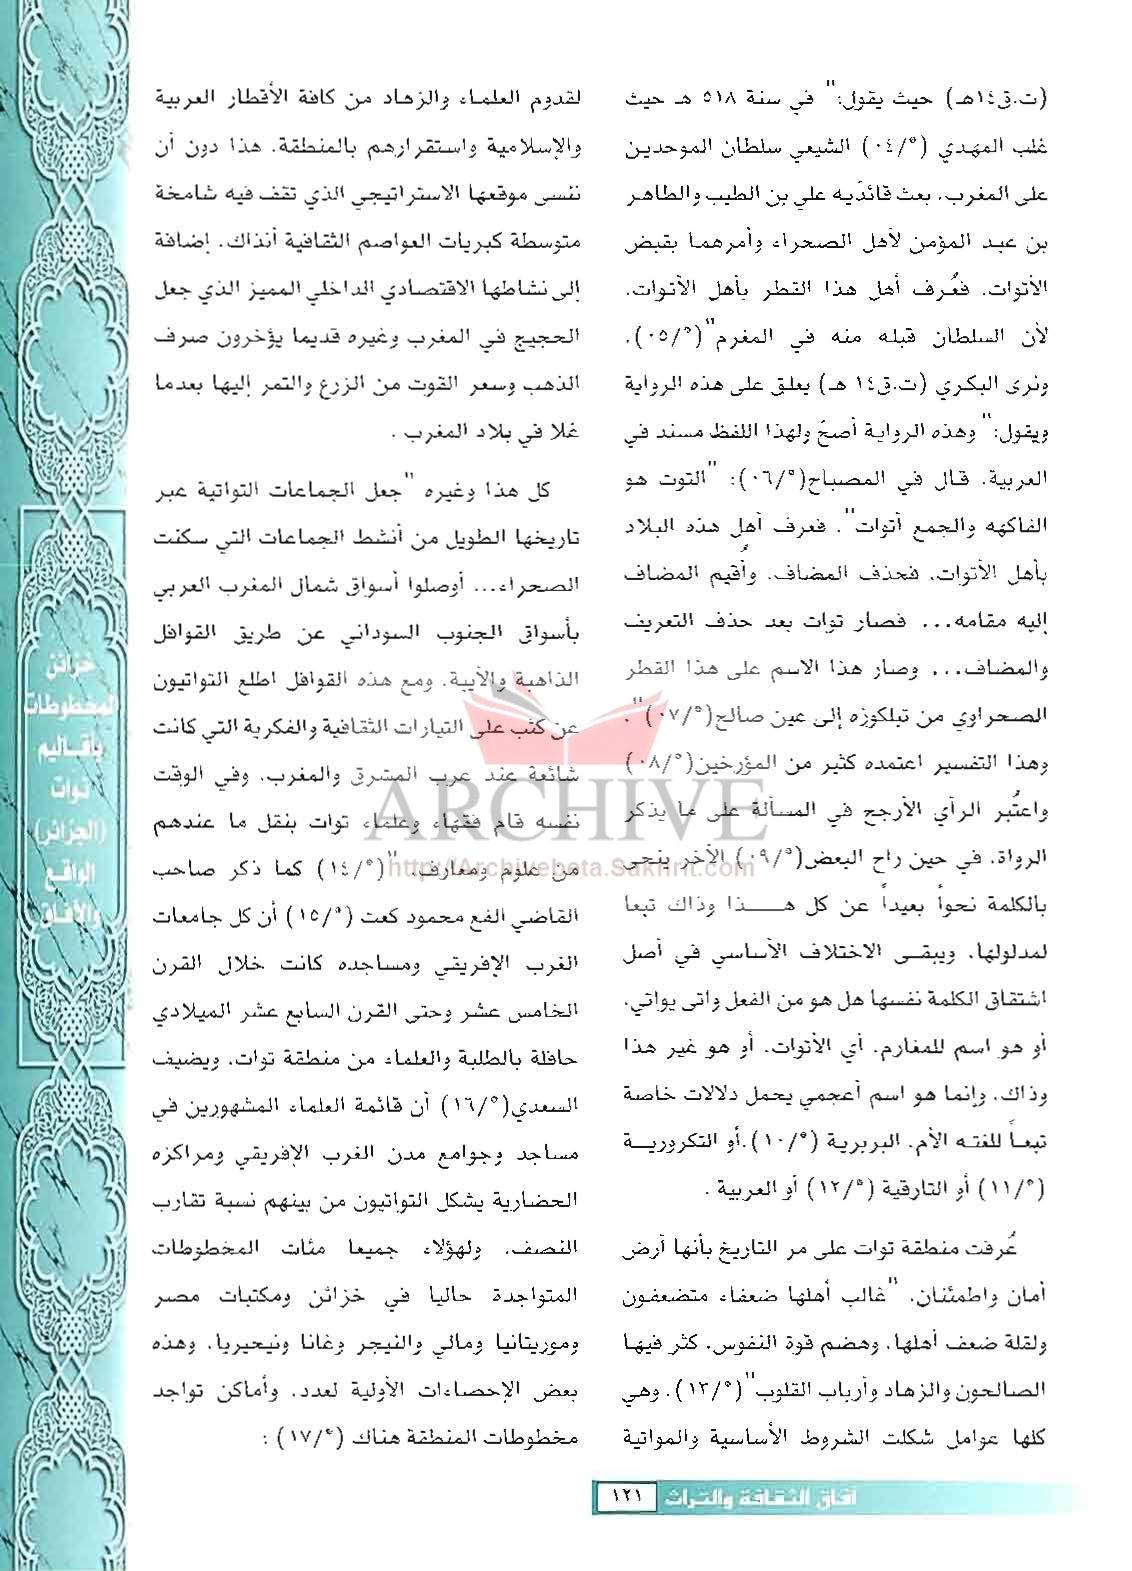 (ت.ق١٤هـ) حيث يقول:" في سنة ٥١٨ هـ حيث
غلب المهدي (°/٠٤) الشيعي سلطان الموحدين
على المغرب، بعث قائدَيه علي بن الطيب والطاهر
بن عبد المؤمن لأهل الصحراء وأمرهما بقبض
الأتوات، فعُرف أهل هذا القطر بأهل الأتوات،
لأن السلطان قبله منه في المغرم"(°/٠٥)،
ونرى البكري (ت.ق١٤ هـ) يعلق على هذه الرواية
ويقول:" وهذه الرواية أصحّ ولهذا اللفظ مسند في
العربية، قال في المصباح(°/٠٦): "التوت هو
الفاكهه والجمع أتوات"، فعرف أهل هذه البلاد
بأهل الأتوات، فحذف المضاف، وأُقيم المضاف
إليه مقامه... فصار توات بعد حذف التعريف
والمضاف... وصار هذا الاسم على هذا القطر
الصحراوي من تبلكوزه إلى عين صالح(°/٠٧)"،
وهذا التفسير اعتمده كثير من المؤرخين(°/٠٨)
واعتُبر الرأي الأرجح في المسألة على ما يذكر
الرواة، في حين راح البعض(°/٠٩) الآخر ينحى
بالكلمة نحواً بعيداً عن كل هـــذا وذاك تبعا
لمدلولها، ويبقــى الاختلاف الأساسي في أصل
اشتقاق الكلمة نفسها هل هو من الفعل واتى يواتي،
أو هو اسم للمغارم، أي الأتوات، أو هو غير هذا
وذاك، وإنما هو اسم أعجمي يحمل دلالات خاصة
تبعاً للغته الأم، البربرية (°/١٠)،أو التكروريــة
(°/١١) أو التارقية (°/١٢) أو العربية .
عُرفت منطقة توات على مر التاريخ بأنها أرض
أمان واطمئنان، "غالب أهلها ضعفاء متضعفون
ولقلة ضعف أهلها، وهضم قوة النفوس، كثر فيها
الصالحون والزهاد وأرباب القلوب"(°/١٣)، وهي
كلها عوامل شكلت الشروط الأساسية والمواتية
لقدوم العلماء والزهاد من كافة الأقطار العربية
والإسلامية واستقرارهم بالمنطقة، هذا دون أن
ننسى موقعها الاستراتيجي الذي تقف فيه شامخة
متوسطة كبريات العواصم الثقافية أنذاك، إضافة
إلى نشاطها الاقتصادي الداخلي المميز الذي جعل
الحجيج في المغرب وغيره قديما يؤخرون صرف
الذهب وسعر القوت من الزرع والتمر إليها بعدما
غلا في بلاد المغرب .
كل هذا وغيره "جعل الجماعات التواتية عبر
تاريخها الطويل من أنشط الجماعات التي سكنت
الصحراء... أوصلوا أسواق شمال المغرب العربي
بأسواق الجنوب السوداني عن طريق القوافل
الذاهبة والآيبة، ومع هذه القوافل اطلع التواتيون
عن كثب على التيارات الثقافية والفكرية التي كانت
شائعة عند عرب المشرق والمغرب، وفي الوقت
نفسه قام فقهاء وعلماء توات بنقل ما عندهم
من علوم ومعارف "(°/١٤) كما ذكر صاحب
القاضي الفع محمود كعت (°/١٥) أن كل جامعات
الغرب الإفريقي ومساجده كانت خلال القرن
الخامس عشر وحتى القرن السابع عشر الميلادي
حافلة بالطلبة والعلماء من منطقة توات، ويضيف
السعدي(°/١٦) أن قائمة العلماء المشهورين في
مساجد وجوامع مدن الغرب الإفريقي ومراكزه
الحضارية يشكل التواتيون من بينهم نسبة تقارب
النصف، ولهؤلاء جميعا مئات المخطوطات
المتواجدة حاليا في خزائن ومكتبات مصر
وموريتانيا ومالي والنيجر وغانا ونيجيريا، وهذه
بعض الإحصاءات الأولية لعدد، وأماكن تواجد
مخطوطات المنطقة هناك (°/١٧) :
خزائن
المخطوطات
بأقاليم
توات
(الجزائر)
الواقع
والآفاق
ARCHIVE
http://Archivebeta.Sakhrit.com
آفاق الثقافة والتراث ١٢١